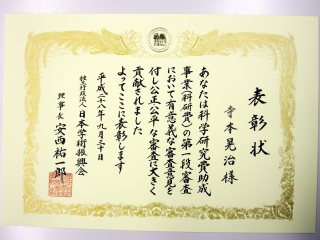 表彰状
寺本晃治様
あなたは科学研究費助成
事業(科研費)の第一段審査
において有意義な審査意見を
付し公正公平な審査に大きく
貢献されました
よってここに表彰します
平成二十八年九月三十日
独立行政法人日本学術振興会
理事長 安西祐一郎